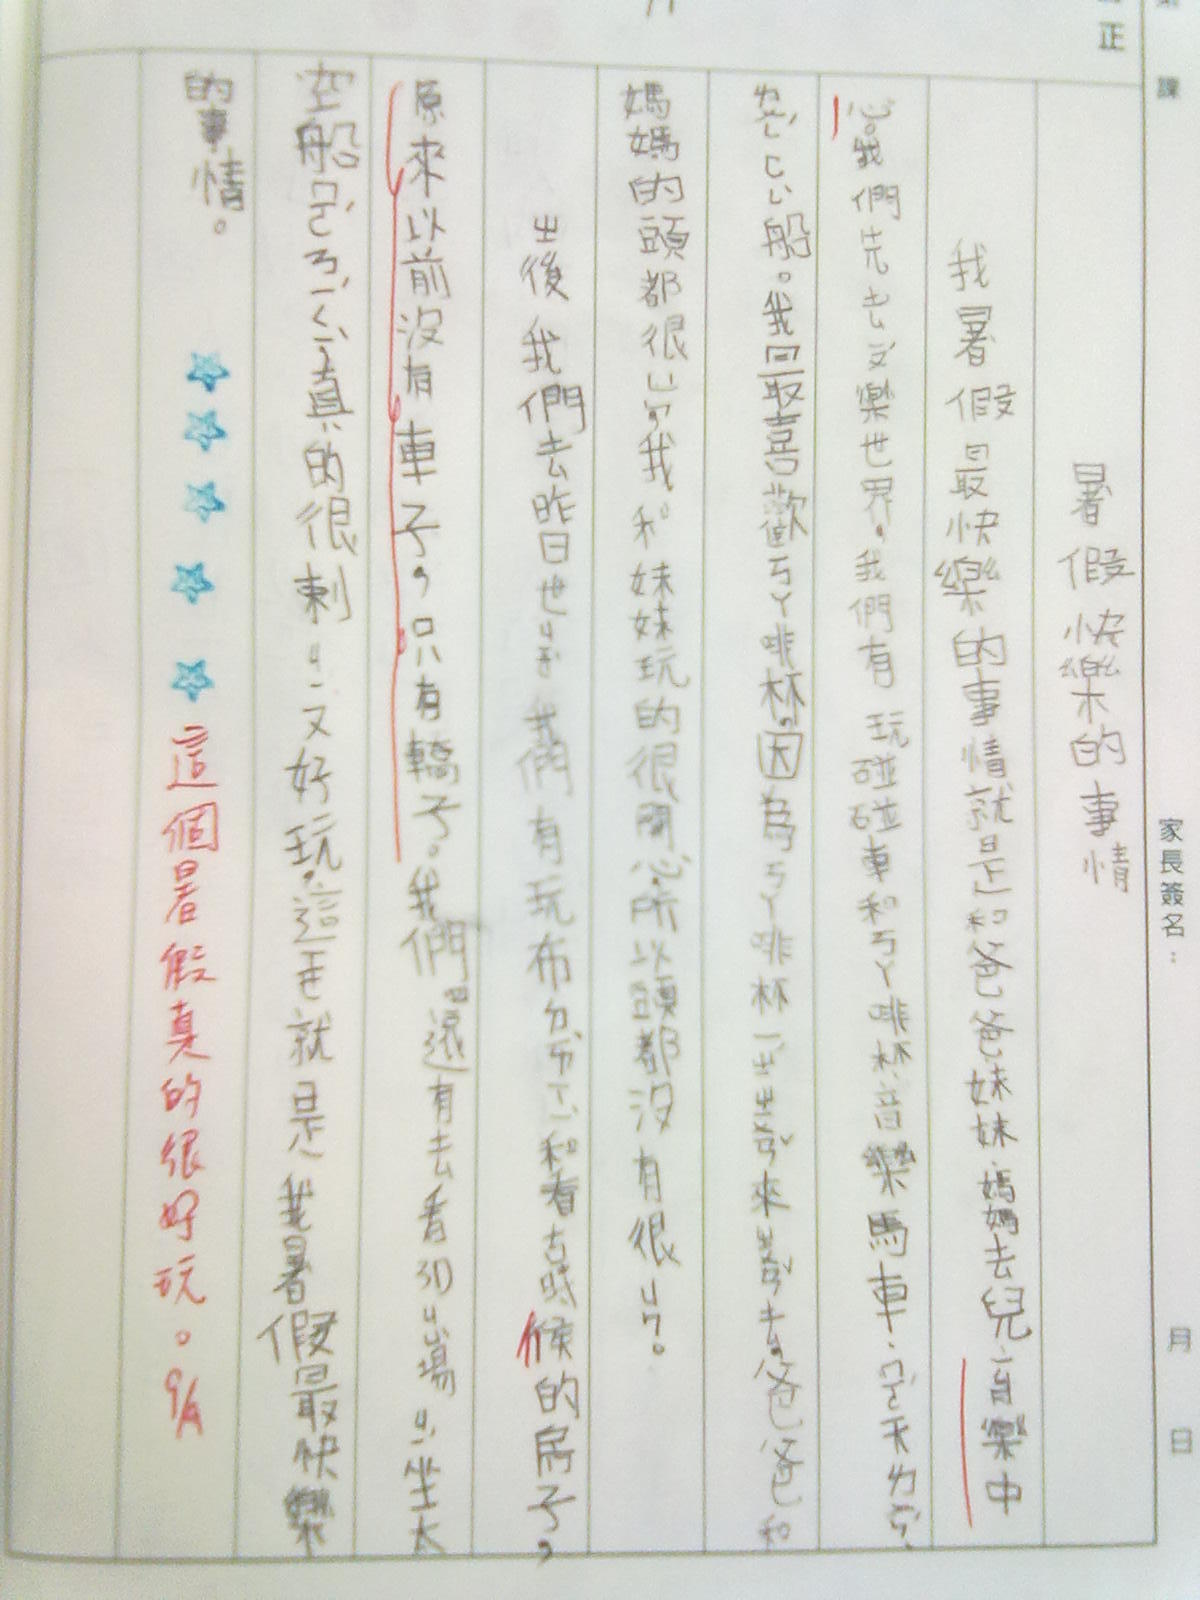 正
課
家長簽名：
月
日
暑假快樂的事情
我暑假最快樂的事情就是和爸爸妹妹媽媽去兒育樂中
心。我們先去文樂世界。我們有玩碰碰車和ㄎㄚ啡杯音樂馬車
船。我最喜歡ㄎㄚ啡杯。因為ㄎㄚ啡杯來去。爸爸和
媽媽的頭都很我和妹妹玩的很開心所以頭都沒有很
後我們去昨日世我們有玩布和看古時候的房子，
原來以前沒有車子，只有轎子。我們還有去看3D場坐太
空船真的很刺又好玩。這就是我暑假最快樂
的事情。
這個暑假真的很好玩。9/4